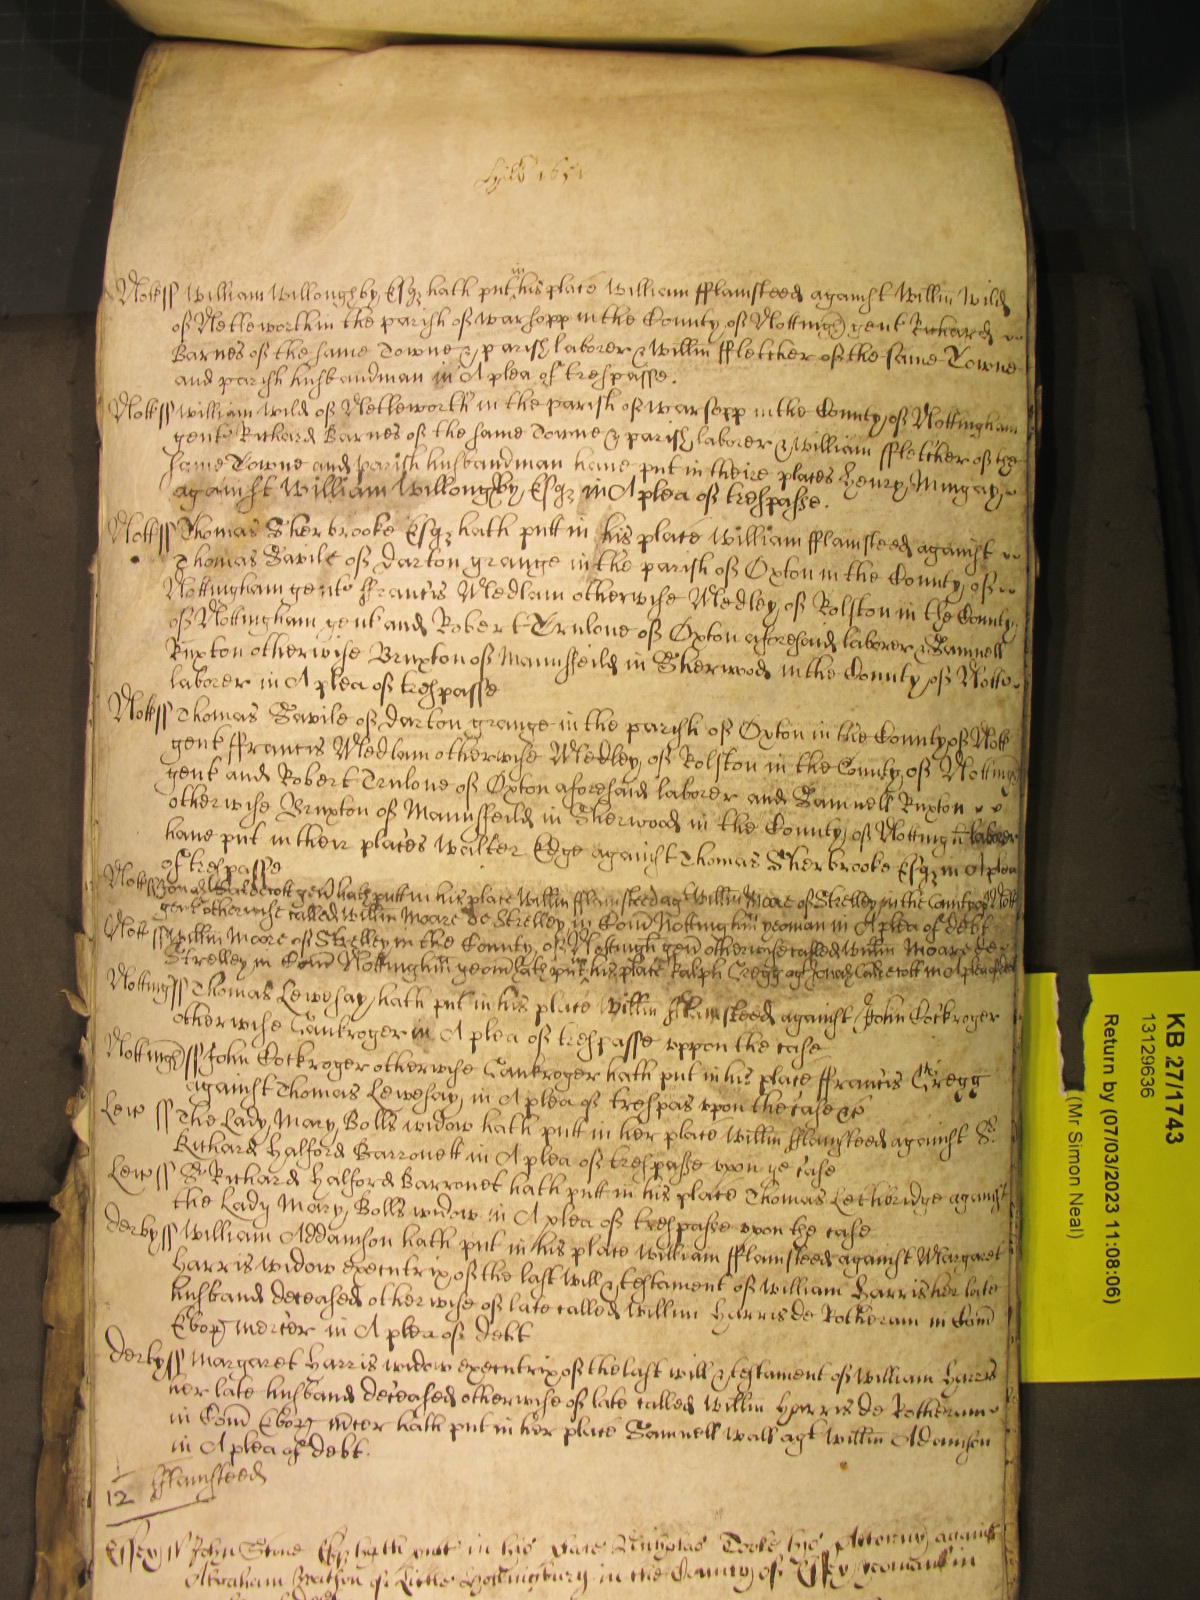 Hill 1651
Nottss William Willoughby Esqz hath put in his place William fflamsteed against Willm Wild
of Netleworth in the parish of Warsopp in the County of Notting gent Richard
Barnes of the same Towne & parish laborer & Willm ffletcher of the same Towne
and parish husbandman in A plea of trespasse.
Nottss William Wild of Netleworth in the parish of Warsopp in the County of Nottingham
gent Richard Barnes of the same Towne & parish laborer & William ffletcher of the
same Towne and parish husbandman haue put in theire places Henry Mingay
against William Willoughby Esqz in A plea of trespasse.
Nottss Thomas Sherbrooke Esqz hath putt in his place William fflamsteed against
Thomas Savile of Darton grange in the parish of Oxton in the County of
Nottingham gent ffrancis Medlam otherwise Medley of Rolston in the County
of Nottingham gent and Robert Trulove of Oxton aforesaid laborer & Samuell
Ruxton otherwise Bruxton of Mannsfeild in Sherwood in the County of Notto
laborer in A plea of trespasse
Nottss Thomas Savile of Darton grange in the parish of Oxton in the County of Nott
gent ffrancis Medlam otherwise Medley of Rolston in the County of Notting
gent and Robert Trulove of Oxton aforesaid laborer and Samuell Ruxton
otherwise Bruxton of Mannsfeild in Sherwood in the County of Notting laborer
haue put in their places Walter Edge against Thomas Sherbrooke Esqz in A plea
of trespasse
Nottss Caldecott gent hath putt in his place Willm fflamsteed agt Willm Moore of Strelley in the County of Nott
gent otherwise called Willm Moore de Strelley in Com Nottingham yeoman in A plea of debt
Nott ss Willm Moore of Strelley in the County of Nottingh gent otherwise called Willm Moore de
Strelley in Com Nottingham yeom hath put in his place Ralph Gregg agt Caldecott in A plea of debt
Nottingss Thomas Lewesay hath put in his place Willm fflamsteed against John Cockroger
otherwise Cankroger in A plea of trespasse uppon the case
Nottingss John Cockroger otherwise Cankroger hath put in his place ffrancis Gregg
against Thomas Lewesay in A plea of trespas upon the case &c
Lew ss The Lady Mary Bolls widow hath putt in her place Willm fflamsteed against Sr
Richard Halford Barronett in A plea of trespasse upon ye case
Lew ss Sr Richard Halford Barronet hath putt in his place Thomas Lethbridge against
the Lady Mary Bolls widow in A plea of trespasse upon the case
Derbyss William Addamson hath put in his place William fflamsteed against Margaret
Harris widow executrix of the last will & testament of William Harris her late
husband deceased otherwise of late called Willm Harris de Rotheram in Com
Ebor mercer in A plea of debt
Derbyss Margaret Harris widow executrix of the last will & testament of William Harris
her late husband deceased otherwise of late called Willm Harris de Rotheram
in Com Ebor mcer hath put in her place Samuell Wall agt Willm Adamson
in A plea of debt.
12 fflamsteed
Essex ss John Stone Esqz hath put in his place Tooke his Attorny against
Abraham of Little Hallingbury in the County of Essex yeoman in
KB 27/1743
13129636
Return by (07/03/2023 11:08:06)
(Mr Simon Neal)